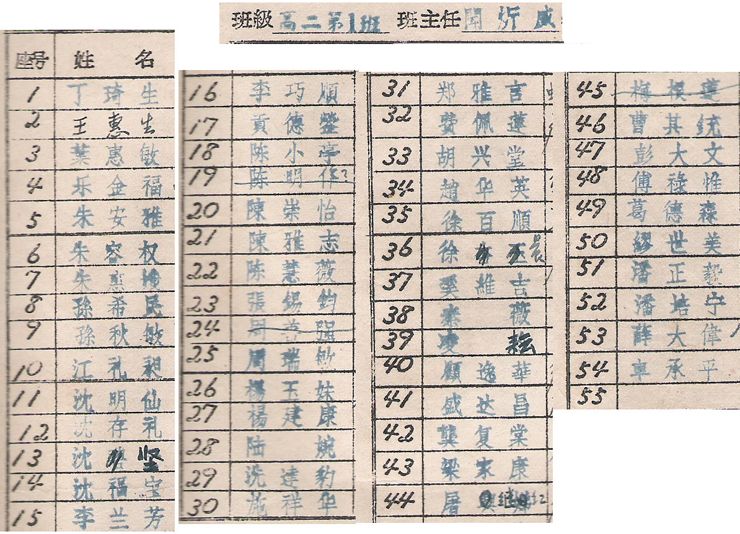 班級 高二第1班 班主任 闻 炘 威
座号 姓 名
1 丁 琦 生
2 王 惠 生
3 葉 惠 敏
4 乐 金 福
5 朱 安 雅
6 朱 容 权
7 朱 惠
8 孫 希 民
9 孫 秋 敏
10 江 礼 昶
11 沈 明 仙
12 沈 存 礼
13 沈 坚
14 沈 福 宝
15 李 兰 芳
16 李 巧 順
17 貢 德
18 陈 小 亭
19 陈 明
20 陳 崇 怡
21 陳 雅 志
22 陈 慧 薇
23 張 錫 鈞
24 强
25 周 瑞
26 楊 玉 妹
27 楊 建 康
28 陆 婉
29 冼 達 豹
30 施 祥 华
31 郑 雅 言
32 費 佩 蓮
33 胡 兴 堂
34 趙 华 英
35 徐 百 順
36 徐
37 維 吉
38 薇
39
40 顧 逸 華
41 盛 达 昌
42 龔 复 棠
43 梁 家 康
44 屠
45 梅
46 曹 其 統
47 彭 大 文
48 傅 祿 惟
49 葛 德 森
50 繆 世 美
51 潘 正 毅
52 潘 培 宁
53 薛 大 偉
54 車 承 平
55